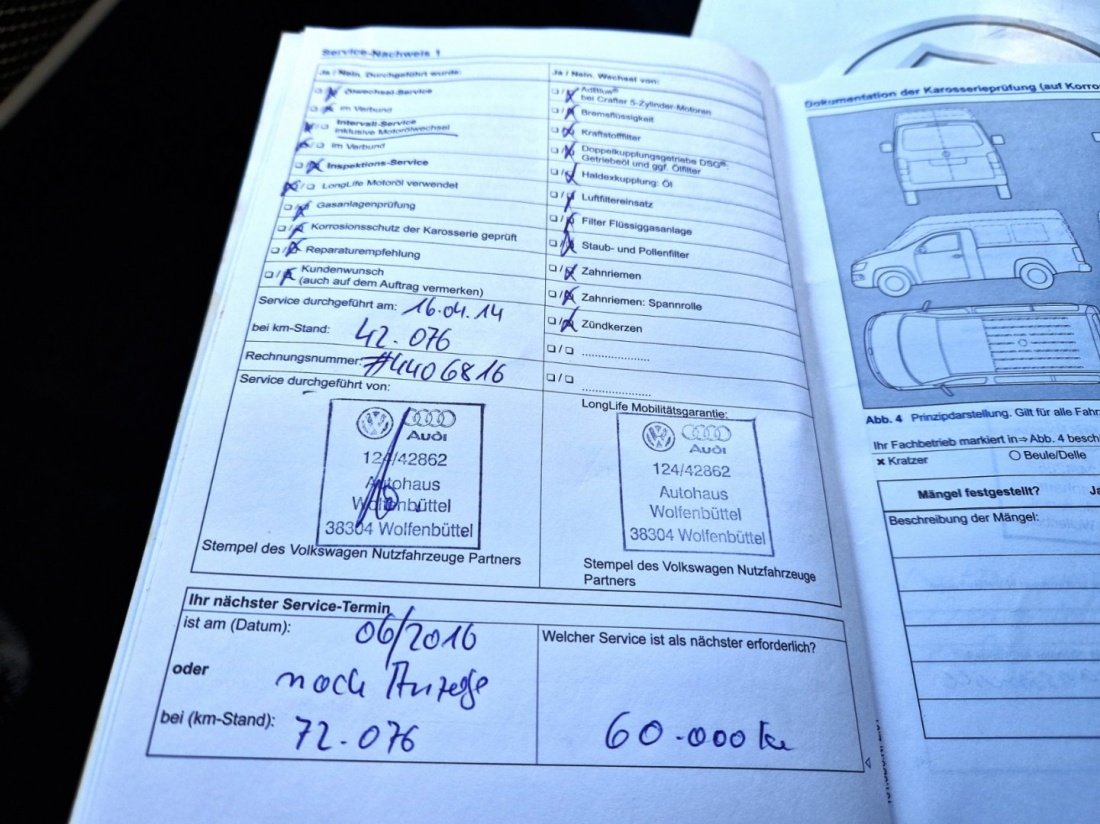 Service-Nachweis 1
Ja / Nein, Durchgeführt wurde:
Ölwechsel-Service
im Verbund
Intervall-Service
inklusive Motorölwechsel
im Verbund
Inspektions-Service
LongLife Motoröl verwendet
Gasanlagenprüfung
Korrosionsschutz der Karosserie geprüft
Reparaturempfehlung
Kundenwunsch
(auch auf dem Auftrag vermerken)
Service durchgeführt am: 16.04.14
bei km-Stand: 42.076
Rechnungsnummer: #4406816
Service durchgeführt von:
Audi
124/42862
Autohaus
Wolfenbüttel
38304 Wolfenbüttel
Stempel des Volkswagen Nutzfahrzeuge Partners
Ja / Nein, Wechsel von:
AdBlue®
bei Crafter 5-Zylinder-Motoren
Bremsflüssigkeit
Kraftstofffilter
Doppelkupplungsgetriebe DSG®:
Getriebeöl und ggf. Ölfilter
Haldexkupplung: Öl
Luftfiltereinsatz
Filter Flüssiggasanlage
Staub- und Pollenfilter
Zahnriemen
Zahnriemen: Spannrolle
Zündkerzen
LongLife Mobilitätsgarantie:
Audi
124/42862
Autohaus
Wolfenbüttel
38304 Wolfenbüttel
Stempel des Volkswagen Nutzfahrzeuge
Partners
Ihr nächster Service-Termin
ist am (Datum): 06/2016
oder
nach Anzeige
bei (km-Stand): 72.076
Welcher Service ist als nächster erforderlich?
60.000 km
Dokumentation der Karosserieprüfung (auf Korro
Abb. 4 Prinzipdarstellung. Gilt für alle Fahr
Ihr Fachbetrieb markiert in⇒ Abb. 4 besch
× Kratzer ○ Beule/Delle
Mängel festgestellt? Ja
Beschreibung der Mängel: